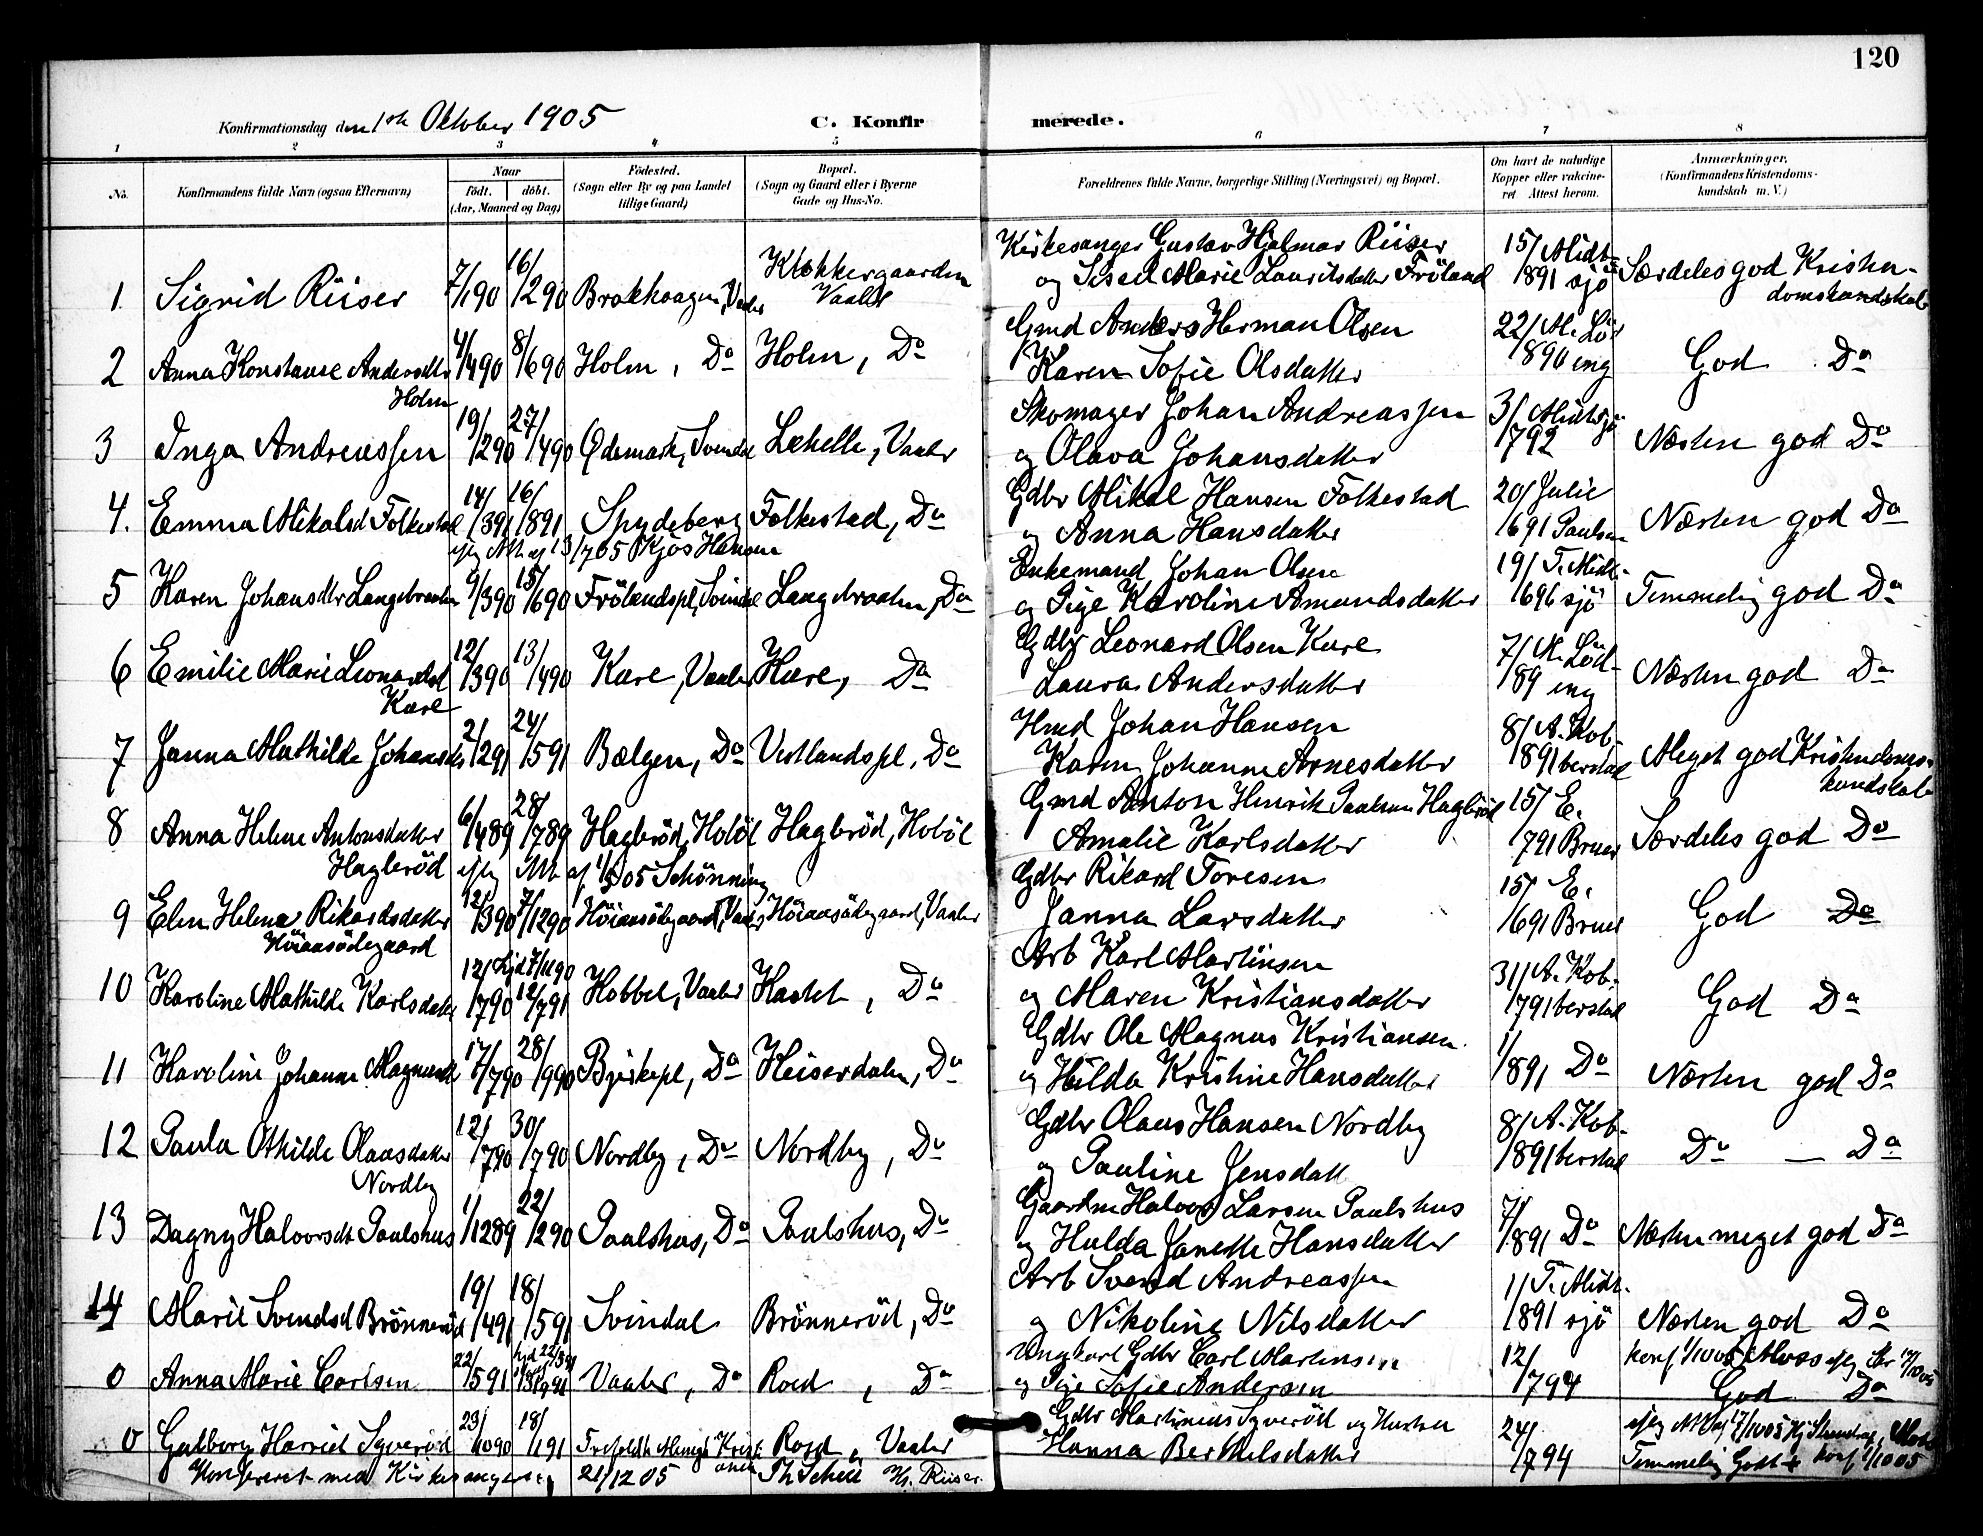 120
Konfirmationsdag den 1ste Oktober 1905
C. Konfirmerede.
1 2 3 4 5 6 7 8
No. Konfirmandens fulde Navn (ogsaa Efternavn)
Naar
födt. döbt.
(Aar, Maaned og Dag)
Födested.
(Sogn eller By og paa Landet
tillige Gaard)
Bopæl.
(Sogn og Gaard eller i Byerne
Gade og Hus-No.
Forældrenes fulde Navne, borgerlige Stilling (Næringsvei) og Bopæl.
Om havt de naturlige
Kopper eller vakcine-
ret Attest herom.
Anmærkninger.
(Konfirmandens Kristendoms-
kundskab m. V.)
1. Sigrid Riiser 7/1 90 16/2 90 Brakhaagen, Vaaler Klokkergaarden Vaaler Kirkesanger Gustav Hjalmar Riiser
og Sisel Marie Lauritsdatter Fröland 15/ 891 Midtsjö Særdeles god Kristendomskundskab
2 Anna Konstanse Andersdtr Holm 4/4 90 8/6 90 Holm, Do Holm, Do Gmd Anders Herman Olsen
Karen Sofie Olsdatter 22/ 890 God Do
3 Inga Andreassen 19/2 90 27/4 90 Ödemark, Svindal Lehelle, Vaaler Skomager Johan Andreassen
og Olava Johansdatter 3/ 792 Midtsjö Næsten god Do
4. Emma Mikalsd Folkestad 14/3 91 16/8 91 Spydeberg Folkestad, Do Gdbr Mikal Hansen Folkestad
og Anna Hansdatter 20/ 691 Julie Paulsen Næsten god Do
efter Att. af 13/7 05 Kjos Hansen
5 Karen Johansdtr Langebraaten 9/3 90 15/6 90 Frölandspl, Svindal Langebraaten, Do Enkemand Johan Olsen
og Pige Karoline Amundsdatter 19/ 696 T. Midtsjö Temmelig god Do
6 Emilie Marie Leonardsd Kure 12/3 90 13/4 90 Kure, Vaaler Kure, Do Gdbr Leonard Olsen Kure
Laura Andersdatter 7/ 89 Næsten god Do
7 Janna Mathilde Johansdtr 2/2 91 24/5 91 Bælgen, Do Vestlandspl, Do Hmd Johan Hansen
Karen Johanne Arnesdatter 8/ 891 A. Kobberstad Meget god Kristendomskundskab
8 Anna Helene Antonsdatter Hagleröd 6/4 89 28/7 89 Hagleröd, Hoböl Hagleröd, Hoböl Gmd Anton Henrik Paulsen Hagleröd
Amalie Karlsdatter 15/ 791 E. Bruer Særdeles god Do
9 Elen Helene Rikardsdatter Höiaasödegaard 12/3 90 7/12 90 Höiaasödegaard, Vaaler Höiaasödegaard, Vaaler Gdbr Rikard Toresen
Janna Larsdatter 15/ 691 E. Bruer God Do
10 Karoline Mathilde Karlsdatter 12/7 90 hjd 7/11 90 12/7 91 Hobbel, Vaaler Do Arb Karl Martinsen
og Maren Kristiansdatter 31/ 791 A. Kobberstad God Do
11 Karoline Johanne Magnusd 17/7 90 28/9 90 Bjerkepl, Do Keiserdalen, Do Gdbr Ole Magnus Kristiansen
og Hilda Kristine Hansdatter 1/ 891 Do Næsten god Do
12 Paula Othilde Olausdatter Nordby 12/7 90 30/7 90 Nordby, Do Nordby, Do Gdbr Olaus Hansen Nordby
og Pauline Jensdatt 8/ 891 A. Kobberstad Do — Do
13 Dagny Halvorsdt Paulshus 1/12 89 22/2 90 Paulshus, Do Paulshus, Do Gaardm Halvor Larsen Paulshus
og Hulda Janette Hansdatter 7/ 891 Do Næsten meget god Do
14 Marie Svendsd Brönneröd 19/4 91 18/5 91 Svindal Brönneröd, Do Arb Svend Andreassen
og Nikoline Nilsdatter 1/ 891 T. Midtsjö Næsten god Do
0 Anna Marie Carlsen 22/5 91 Vaaler, Do Roed, Do Ungkarl Gdbr Carl Martinsen
og Pige Sofie Andersen 12/ 794 konf 1/10 05 Moss God Do
0 Gulborg Harriet Syveröd 23/10 90 18/1 91 Roed, Vaaler Gdbr Martinius Syveröd og Hustru
Hanna Berthilsdatter 24/ 794 Temmelig Godt konf 1/10 05
Konfereret med Kirkesangeren 21/12 05 Th Scheie Hj. Riiser